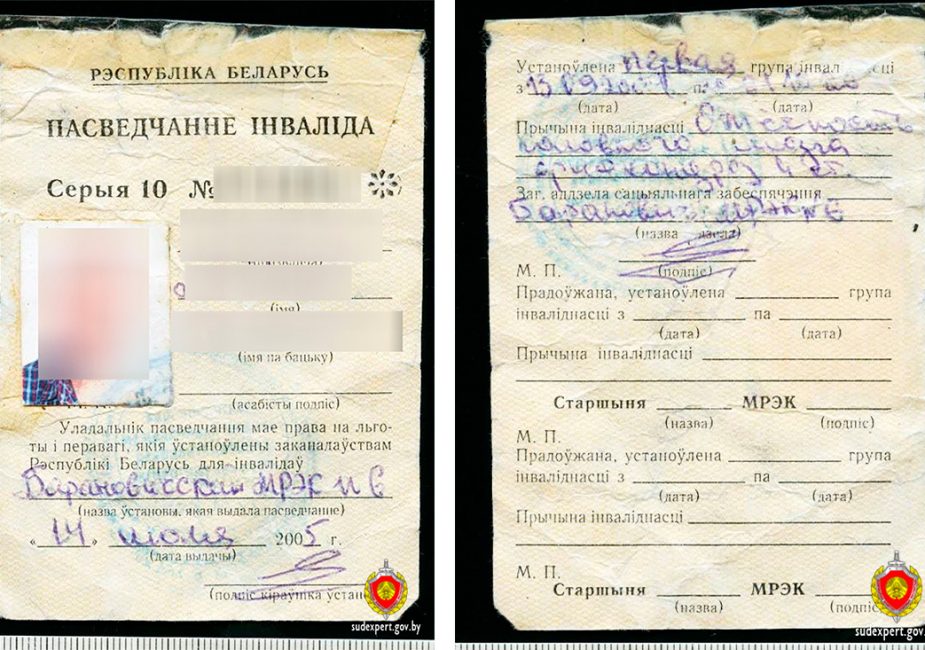 РЭСПУБЛІКА БЕЛАРУСЬ
ПАСВЕДЧАННЕ ІНВАЛІДА
Серыя 10 №
(імя)
(імя па бацьку)
(асабісты подпіс)
Уладальнік пасведчання мае права на льго-
ты і перавагі, якія ўстаноўлены заканадаўствам
Рэспублікі Беларусь для інвалідаў
Барановичская МРЭК
(назва ўстановы, якая выдала пасведчанне)
« 14 » июля 2005 г.
(дата выдачы)
(подпіс кіраўніка устан
sudexpert.gov.by
Устаноўлена первая група інвал сці
з
(дата) (дата)
Прычына інваліднасці
головного мозга
Заг. аддзела сацыяльнага забеспячэння
Баранович МРЭК
(назва
М. П. (подпіс)
Прадоўжана, устаноўлена група
інваліднасці з па
(дата) (дата)
Прычына інваліднасці
Старшыня МРЭК
(назва) (подпіс)
М. П.
Прадоўжана, устаноўлена група
інваліднасці з па
(дата) (дата)
Прычына інваліднасці
М. П.
Старшыня МРЭК
(назва) (подпіс
sudexpert.gov.by